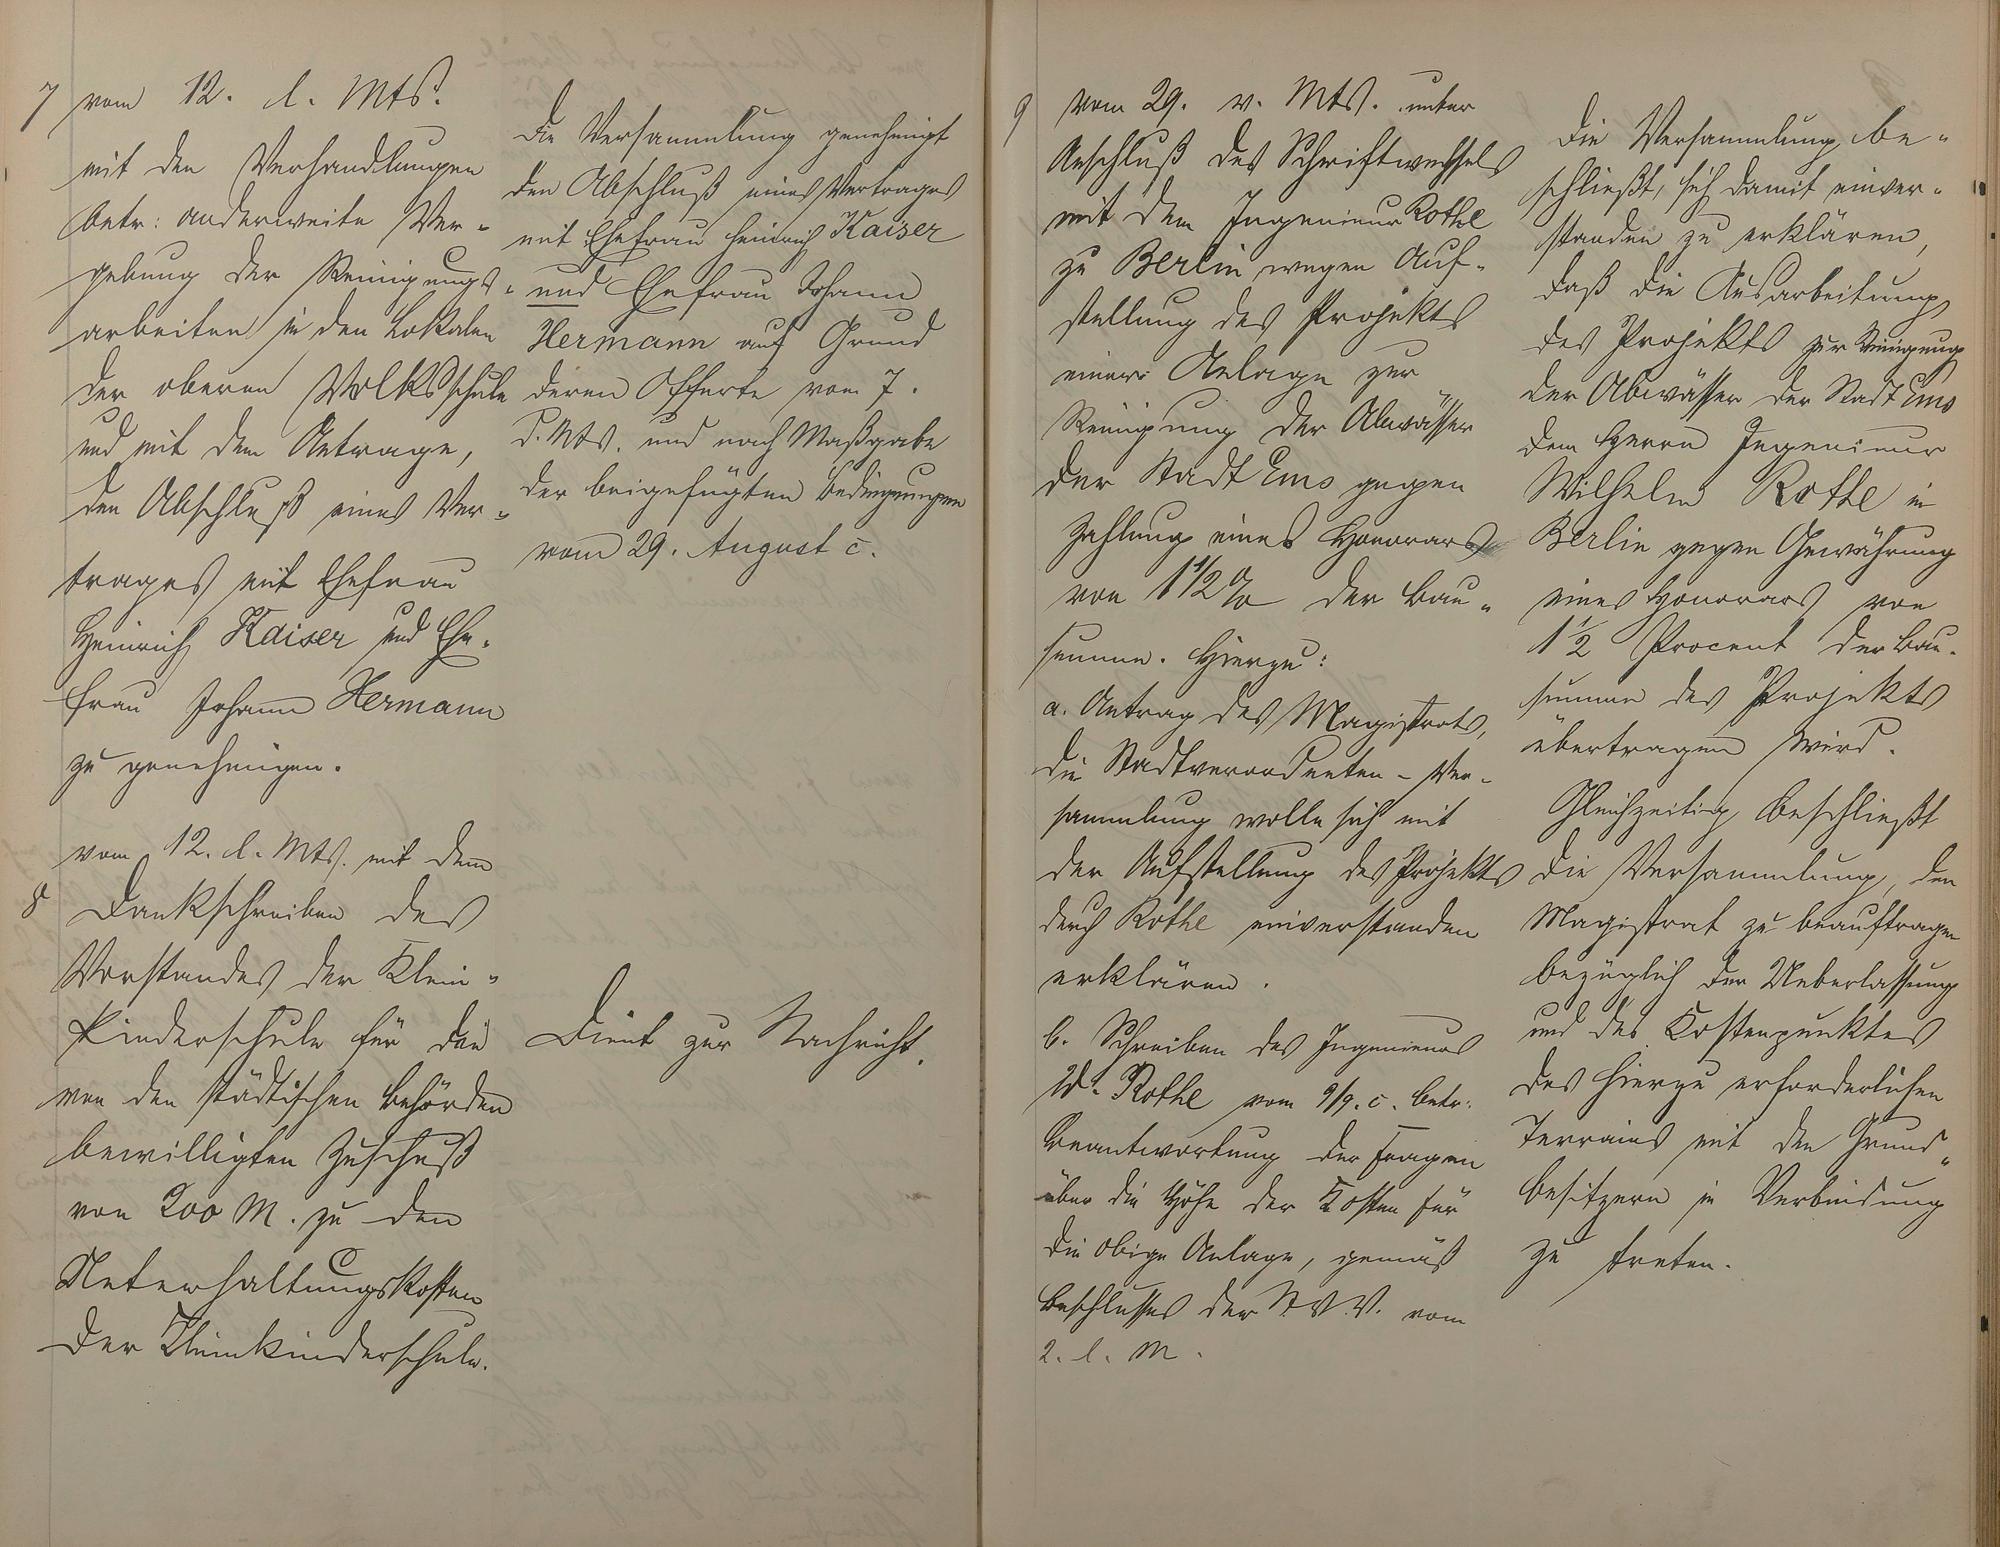 7 vom 12. l. Mts.
mit den Verhandlungen
betr: anderweite Ver-
gebung der Reinigungs-
arbeiten in den Lokalen
der oberen Volksschule
und mit dem Antrage,
den Abschluß eines Ver-
trages mit Ehefrau
Heinrich Kaiser und Ehe-
frau Johann Hermann
zu genehmigen.
Die Versammlung genehmigt
den Abschluß eines Vertrages
mit Ehefrau Heinrich Kaiser
und Ehefrau Johann
Hermann auf Grund
deren Offerte vom 7.
d. Mts. und nach Maßgabe
der beigefügten Bedingungen
vom 29. August c.
vom 12. l. Mts. mit dem
8 Dankschreiben des
Vorstandes der Klein-
kinderschule für den
von den städtischen Behörden
bewilligten Zuschuß
von 200 M. zu den
Unterhaltungskosten
der Kleinkinderschule.
Dient zur Nachricht.
9 vom 29. v. Mts. unter
Anschluß des Schriftwechsels
mit dem Ingenieur Rothe
zu Berlin wegen Auf-
stellung des Projekts
einer Anlage zur
Reinigung der Abwässer
der Stadt Ems gegen
Zahlung eines Honorars
von 1 1/2 % der Bau-
summe. Hierzu:
a. Antrag des Magistrats,
die Stadtverordneten-Ver-
sammlung wolle sich mit
der Aufstellung des Projekts
durch Rothe einverstanden
erklären.
b. Schreiben des Ingenieurs
W. Rothe vom 9/9. c. betr.
Beantwortung der Fragen
über die Höhe der Kosten für
die obige Anlage, gemäß
Beschlusses der St.V.V. vom
2. l. M.
Die Versammlung be-
schließt, sich damit einver-
standen zu erklären,
daß die Ausarbeitung
des Projekts zur Reinigung
der Abwässer der Stadt Ems
dem Herrn Ingenieur
Wilhelm Rothe in
Berlin gegen Gewährung
eines Honorars von
1 1/2 Procent der Bau-
summe des Projekts
übertragen wird.
Gleichzeitig beschließt
die Versammlung, den
Magistrat zu beauftragen
bezüglich der Ueberlassung
und des Kostenpunktes
des hierzu erforderlichen
Terrains mit den Grund-
besitzern in Verbindung
zu treten.